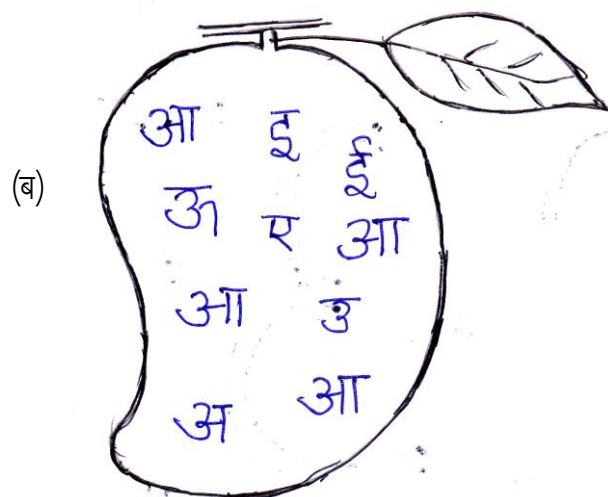 आ इ ई
(ब)
ऊ ए आ
आ उ
अ आ